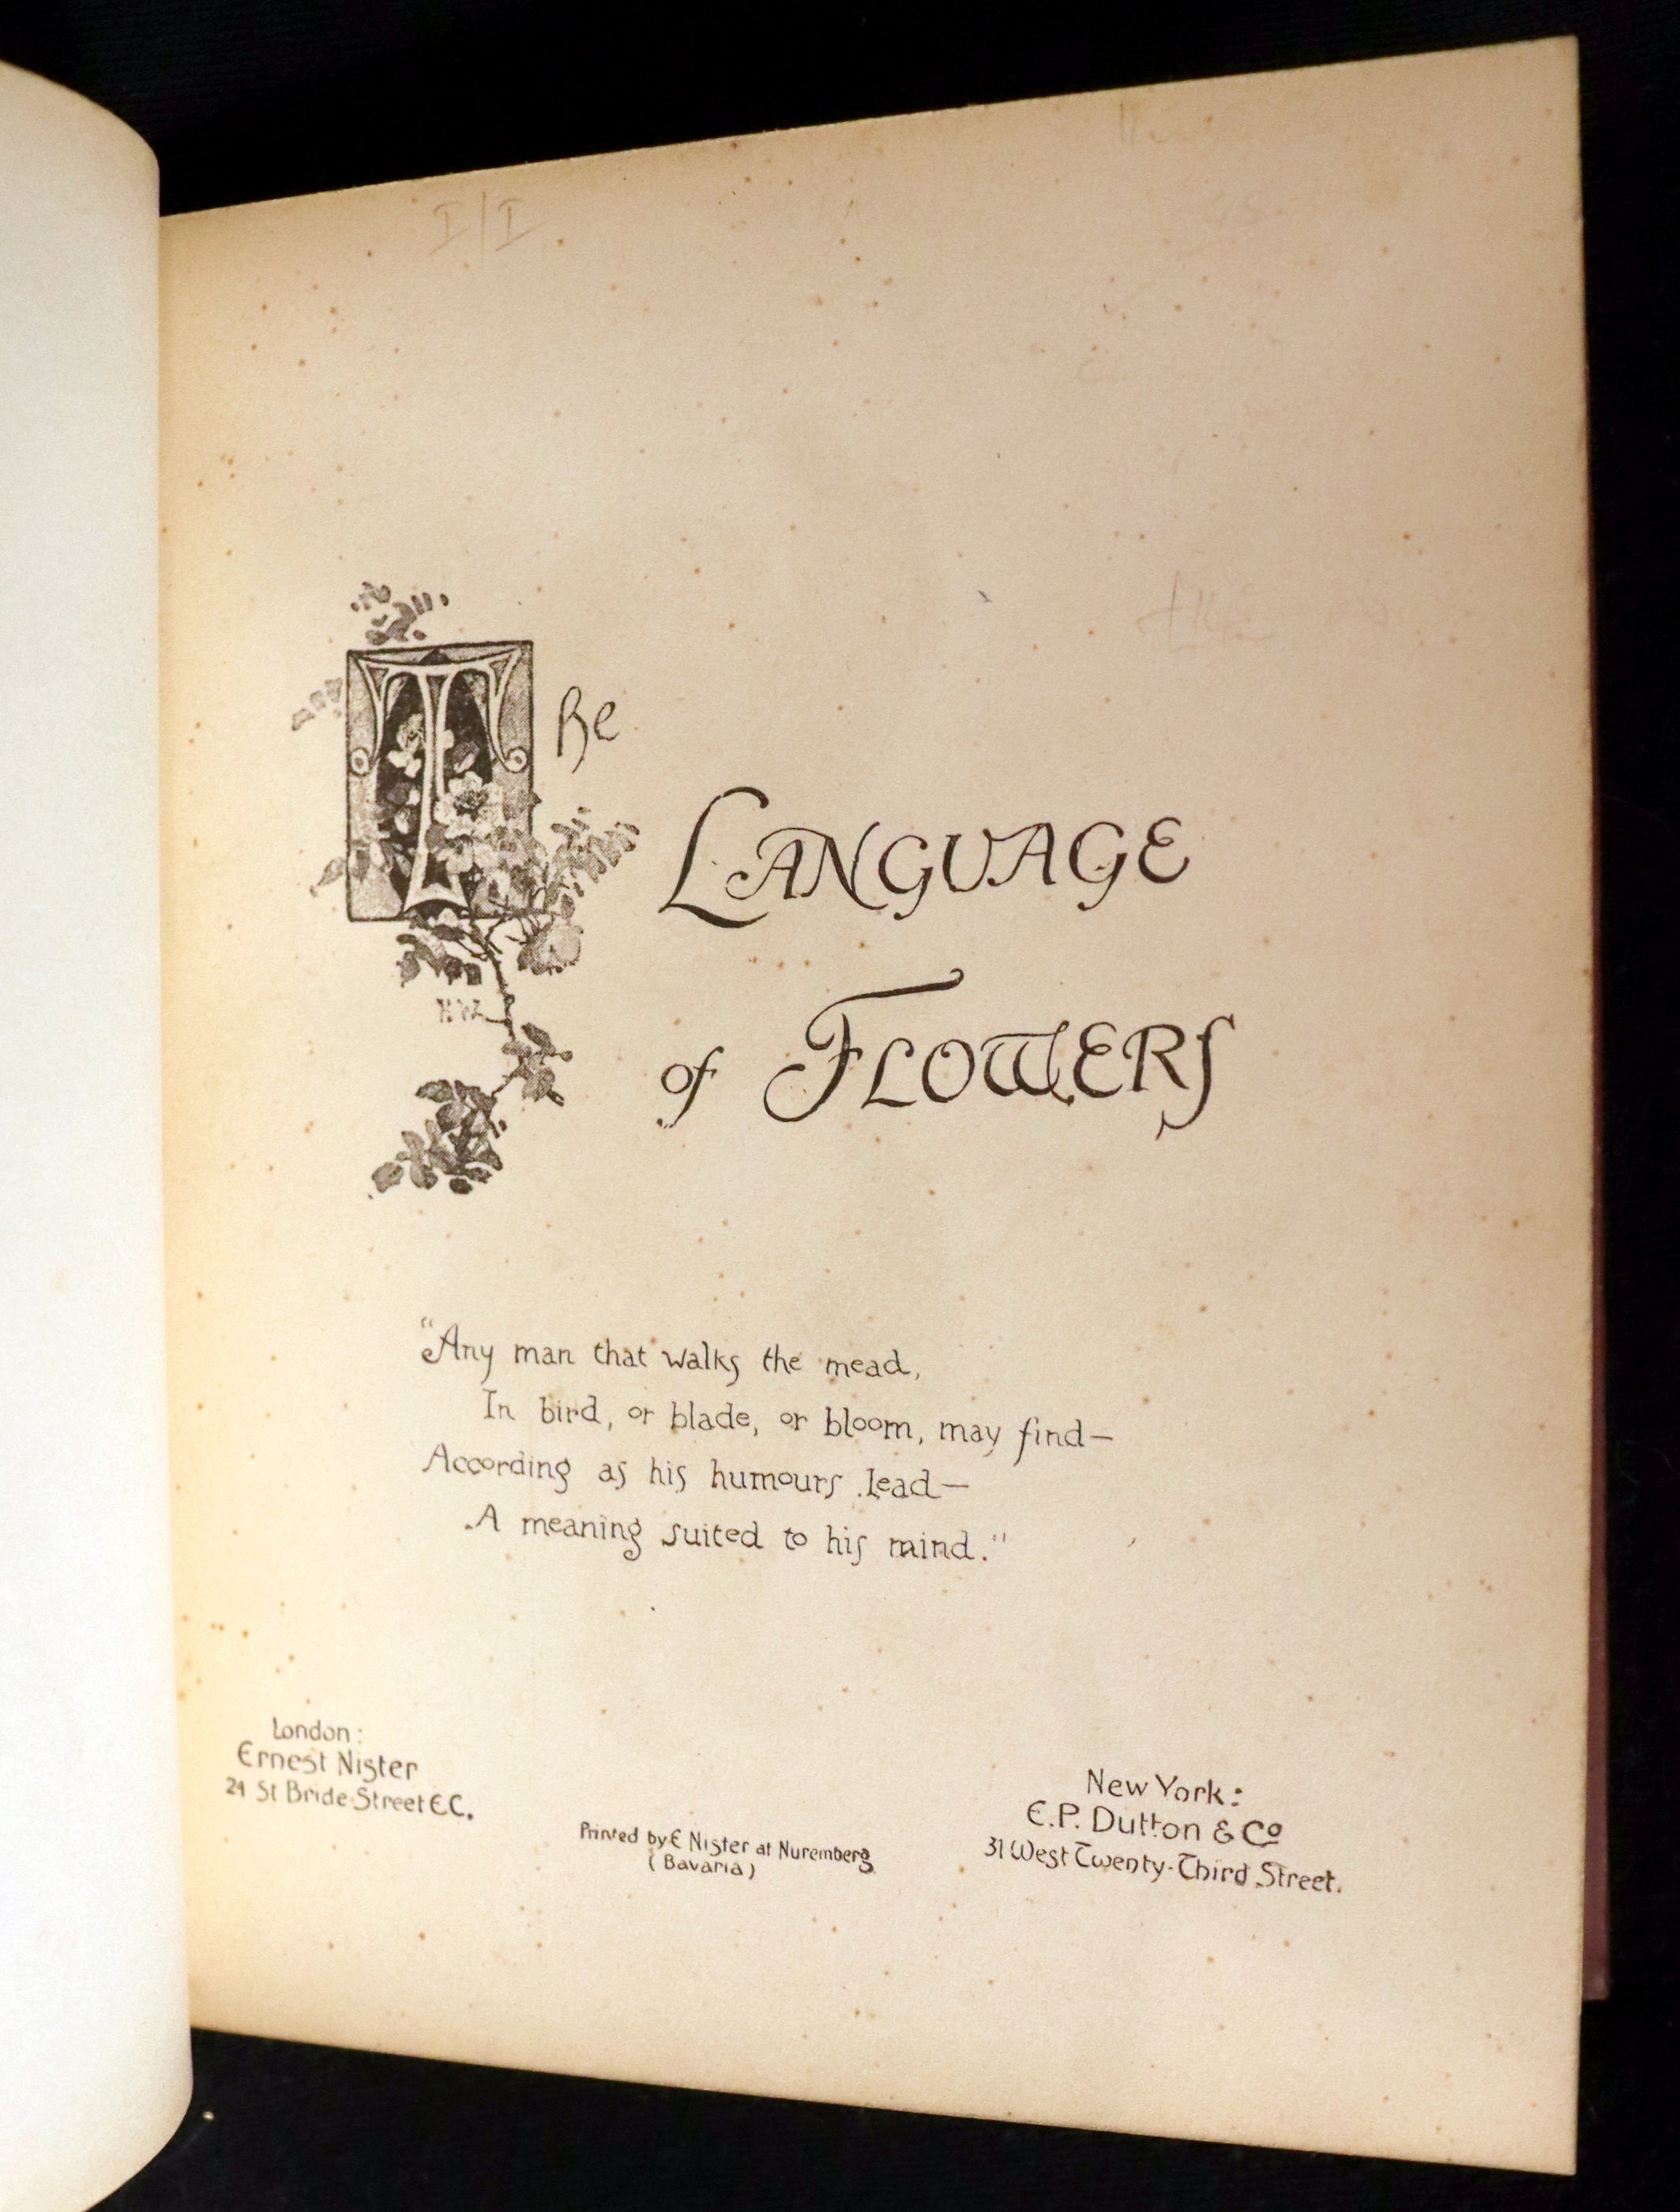 I/I
The
Language
of Flowers
"Any man that walks the mead,
In bird, or blade, or bloom, may find—
According as his humours lead—
A meaning suited to his mind."
London:
Ernest Nister
24 St Bride Street E.C.
Printed by E Nister at Nuremberg
(Bavaria)
New York:
E.P. Dutton & Co
31 West Twenty-Third Street.